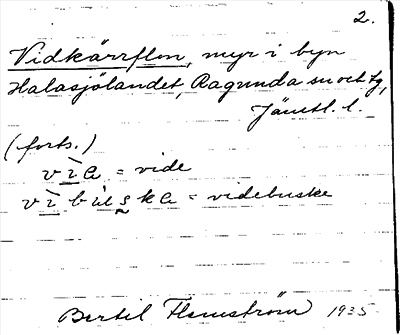 2.
Vidkärrflon, myr i byn
Halasjölandet, Ragunda sn och tg,
Jämtl. l.
(forts.)
vìa = vide
vìbùska = videbuske
Bertil Flemström 1935